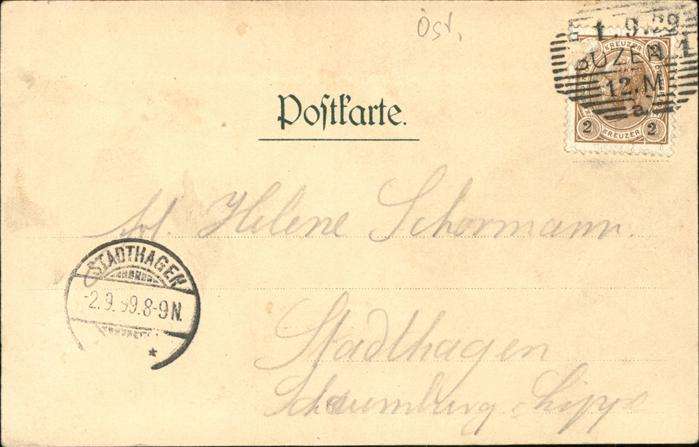 Öst.
1.9.99
BOZEN 1
12.M
a
KREUZER
2 KREUZER 2
Postkarte.
Frl. Helene Schormann.
STADTHAGEN
-2.9.99.8-9N.
*
Stadthagen
Schaumburg-Lippe